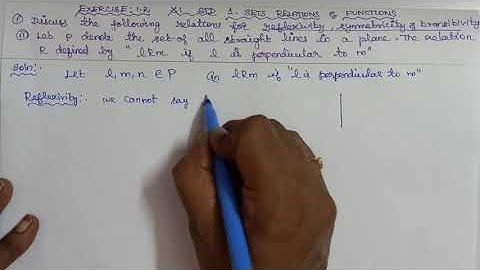 EXERCISE: 1.2 XI STD 1. SETS, RELATIONS & FUNCTIONS
① Discuss the following relations for reflexivity, symmetricity & transitivity
(ii) Let P denote the set of all straight lines in a plane. The relation
R defined by "lRm if l is perpendicular to m"
Soln: Let l, m, n ∈ P lRm if "l is perpendicular to m"
Reflexivity: we cannot say